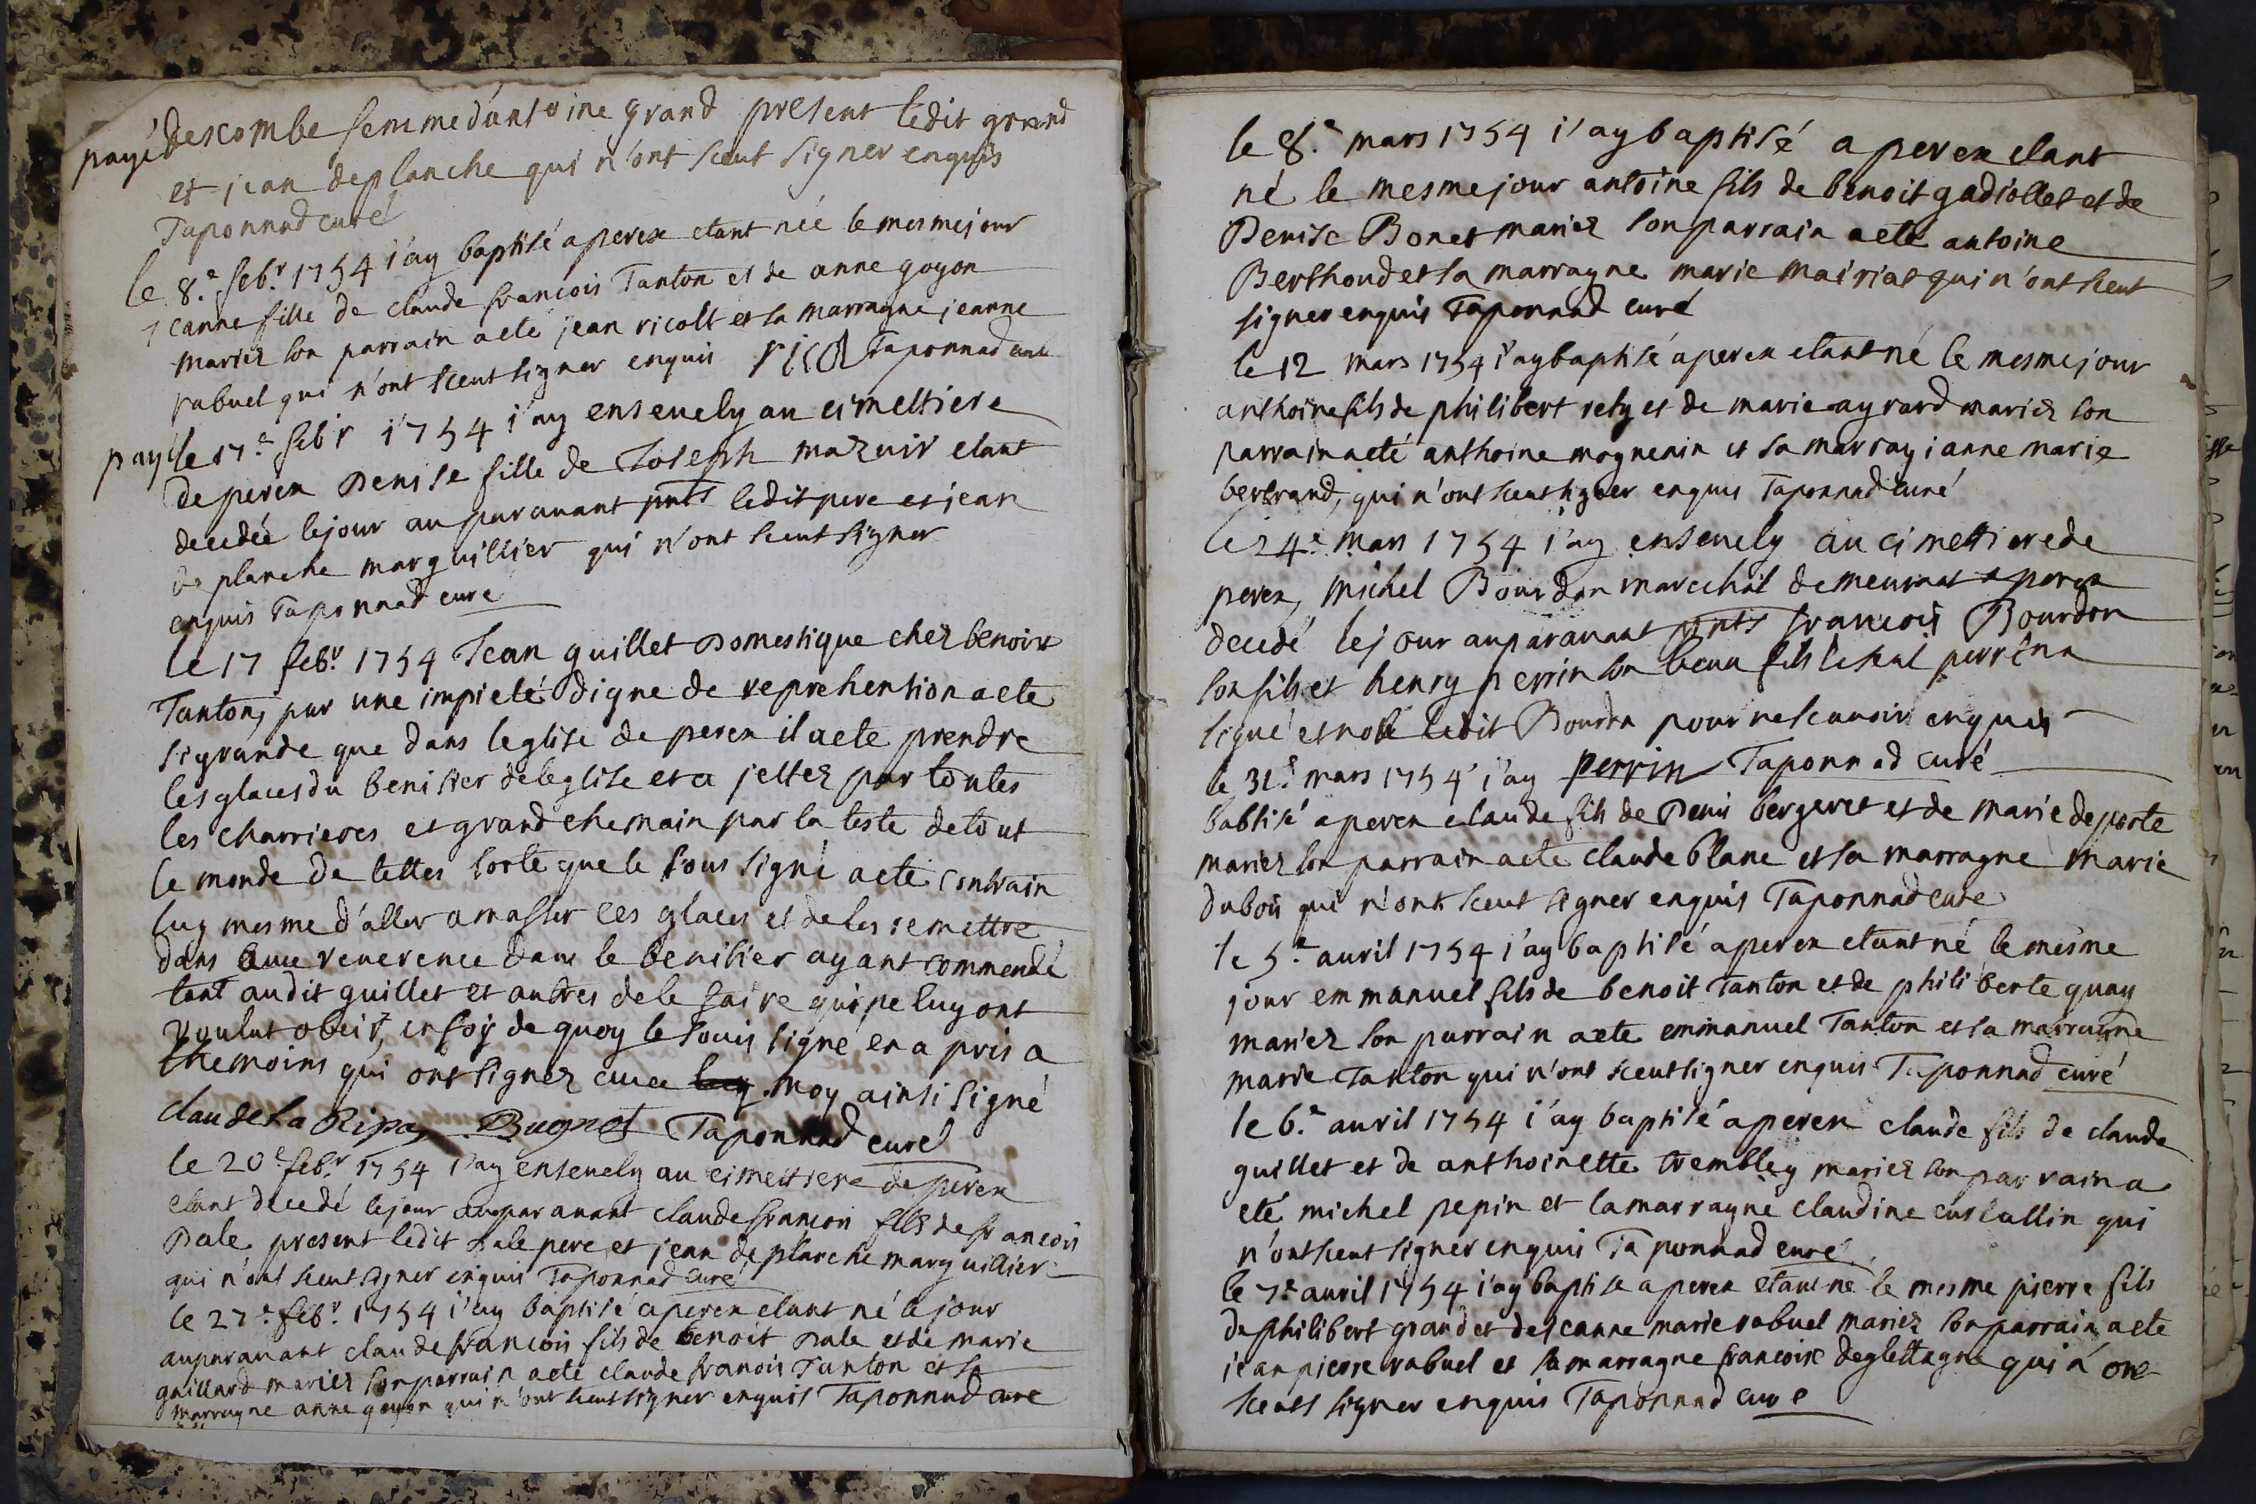 payé descombe femme d'antoine grand present ledit grand
et jean deplanche qui n'ont sceut signer enquis
Taponnad curé
le 8.e febr 1754 i'ay baptisé a perex etant née le mesme jour
jeanne fille de claude francois Tanton et de anne goyon
mariez son parrain aeté jean ricolt et sa marragne jeanne
rabuel qui n'ont sceut signer enquis rico Taponnad curé
payé le 17.e febr 1754 i'ay ensevely au cimettiere
de perex Denise fille de Joseph mazuir etant
decedée le jour auparavant pnts ledit pere et jean
de planche marguillier qui n'ont sceut signer
enquis Taponnad curé
le 17 febr 1754 Jean guillet Domestique chez benoit
Tanton, par une impieté digne de reprehention aeté
si grande que dans leglise de perex il aeté prendre
les glaces du benitier deleglise et a jettez par toutes
les charrieres et grand chemain par la teste de tout
le monde de tettes sorte que le sous signé aeté contrain
luy mesme d'aller amasser ces glaces et de les remettre
dans avec reverence dans le benitier ayant commendé
tant audit guillet et autres dele faire qui ne luy ont
voulut obeir, en foy de quoy le sous signé en a pris a
themoins qui ont signez avec luy moy ainsi signé
claude La Ripa Bugnot Taponnad curé
le 20e febr 1754 i'ay ensevely au cimettiere de perex
etant decedé le jour auparavant claude francon fils de francois
Dale present ledit Dale pere et jean deplanche marguillier
qui n'ont sceut signer enquis Taponnad curé
le 27.e febr 1754 i'ay baptisé a perex etant né le jour
auparavant claude francois fils de benoit Dale et de marie
guillard mariez son parrain aeté claude franois Tanton et sa
marragne anne goyon qui n'ont sceut signer enquis Taponnad curé
le 8.e mars 1754 i'ay baptisé a perex etant
né le mesme jour antoine fils de benoit gadiollet et de
Denise Bonet mariez son parrain aeté antoine
Berthoud et sa marragne marie mairiat qui n'ont sceut
signer enquis Taponnad curé
le 12 mars 1754 i'ay baptisé a perex etant né le mesme jour
anthoine fils de philibert rety et de marie ayrard mariez son
parrain aeté anthoine magnenin et sa marray ianne marie
bertrand, qui n'ont sceut signer enquis Taponnad curé
le 24.e mars 1754 i'ay ensevely au cimettiere de
perex, michel Bourdon marechal demeurat a perex
decedé le jour auparavant pnts francois Bourdon
son fils et henry perrin son beau fils lequel perrin a
signé et non ledit Bourdn pour ne scavoir enquis
le 31.e mars 1754 i'ay perrin Taponnad curé
babtisé a perex claude fils de Denis bergeret et de marie deporte
mariez son parrain aeté claude blanc et sa marragne marie
dubois qui n'ont sceut signer enquis Taponnad curé
le 5.e avril 1754 i'ay baptisé a perex etant né le mesme
jour emmanuel fils de benoit Tanton et de philiberte guay
mariez son parrain aeté emmanuel Tanton et sa marragne
marie Tanton qui n'ont sceut signer enquis Taponnad curé
le 6.e avril 1754 i'ay baptisé a perex claude fils de claude
guillet et de anthoinette trembley mariez son parrain a
eté michel pepin et la marragne claudine curtallin qui
n'ont sceut signer enquis Taponnad curé
le 7.e avril 1754 i'ay baptisé a perex etant né le mesme pierre fils
de philibert grand et de jeanne marie rabuel mariez son parrain aeté
jean pierre rabuel et sa marragne francoise deglettagne qui n'ont
sceuts signer enquis Taponnad curé